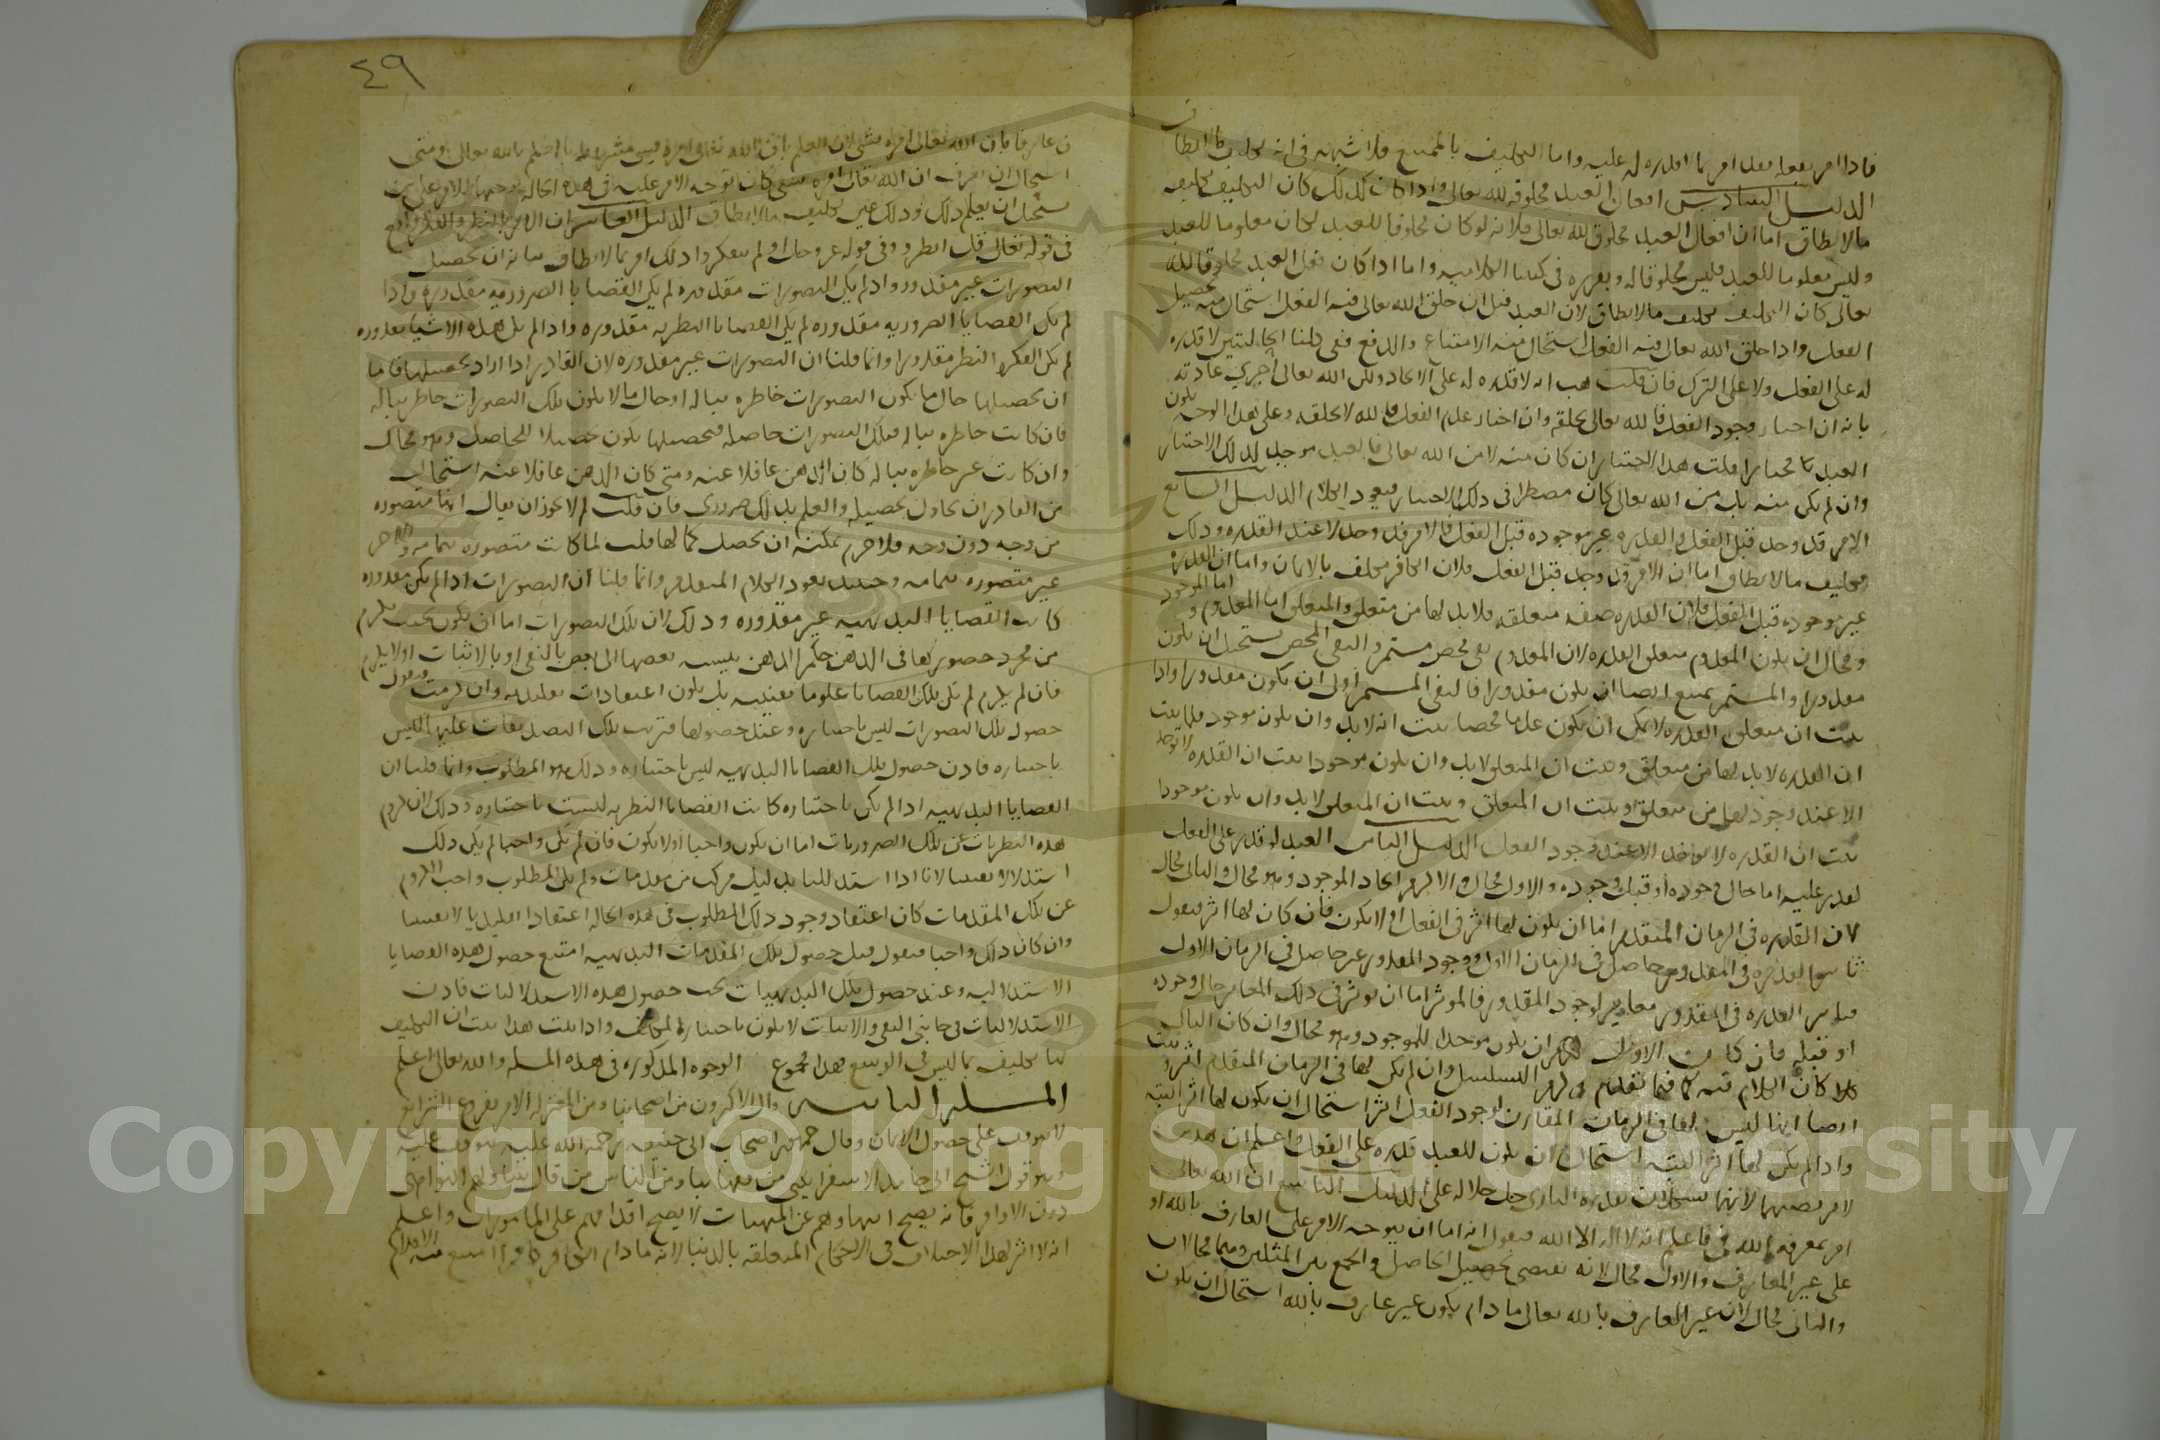 فاذا امر بفعله فقد امر بما لا قدرة له عليه واما التكليف بالممتنع فلا شبهة في انه تكليف ما لا يطاق
الدليل السادس افعال العبد مخلوقة لله تعالى واذا كان كذلك كان التكليف تكليف
ما لا يطاق اما ان افعال العبد مخلوق لله تعالى فلانه لو كان مخلوقا للعبد لكان معلوما للعبد
وليس معلوما للعبد فليس مخلوقا له وتقريره في كتبنا الكلامية واما اذا كان فعل العبد مخلوقا لله
تعالى كان التكليف تكليف ما لا يطاق لان العبد قبل ان خلق الله تعالى فيه الفعل استحال منه تحصيل
الفعل واذا خلق الله تعالى فيه الفعل استحال منه الامتناع والدفع ففي كلتا الحالتين لا قدرة
له على الفعل ولا على الترك فان قلت هب انه لا قدرة له على الايجاد ولكن الله تعالى اجرى عادته
بانه ان اختار وجود الفعل فالله تعالى يخلقه وان اختار عدم الفعل فالله لا يخلقه وعلى هذا الوجه يكون
العبد مختارا قلت هذا الاختيار ان كان منه لا من الله تعالى فالعبد موجد لذلك الاختيار
وان لم يكن منه بل من الله تعالى كان مضطرا في ذلك الاختيار فيعود الكلام الدليل السابع
الامر قد وجد قبل الفعل والقدرة غير موجودة قبل الفعل فالامر قد وجد لا عند القدرة وذلك
تكليف ما لا يطاق اما ان الامر قد وجد قبل الفعل فلان الكافر مكلف بالايمان واما ان القدرة
غير موجودة قبل الفعل فلان القدرة صفة متعلقة فلا بد لها من متعلق والمتعلق اما المعدوم و اما الموجود
ومحال ان يكون المعدوم متعلق القدرة لان المعدوم نفي محض مستمر والنفي المحض يستحيل ان يكون
مقدورا والمستمر يمتنع ايضا ان يكون مقدورا فالنفي المستمر اولى ان لا يكون مقدورا واذا
ثبت ان متعلق القدرة لا يمكن ان يكون عدما محضا ثبت انه لا بد وان يكون موجودا فلما ثبت
ان القدرة لا بد لها من متعلق وثبت ان المتعلق لا بد وان يكون موجودا ثبت ان القدرة لا توجد
الا عند وجود الفعل من متعلق وثبت ان المتعلق وثبت ان المتعلق لا بد وان يكون موجودا
ثبت ان القدرة لا توجد الا عند وجود الفعل الدليل الثامن العبد لو قدر على الفعل
لقدر عليه اما حال وجوده او قبل وجوده والاول محال والا لزم ايجاد الموجود وهو محال والثاني محال
لان القدرة في الزمان المتقدم اما ان يكون لها اثر في الفعل او لا يكون فان كان لها اثر فنقول
تاثير القدرة في المقدور حاصل في الزمان الاول ووجود المقدور غير حاصل في الزمان الاول
فتاثير القدرة في المقدور مغاير لوجود المقدور فالموثر اما ان يوثر في ذلك المغاير حال وجوده
او قبله فان كان الاول لزم ان يكون موجدا للموجود وهو محال وان كان الثاني
كان الكلام فيه كما فيما تقدم ولزم التسلسل وان لم يكن لها في الزمان المتقدم اثر وثبت
ايضا انها ليس لها في الزمان المقارن لوجود الفعل اثر استحال ان يكون لها اثر البتة
واذا لم يكن لها اثر البتة استحال ان يكون للعبد قدرة على الفعل واعلم ان هذين
لا نرتضيهما لانهما يشكلان بقدرة الباري جل جلاله على الدليل التاسع ان الله تعالى
امر بمعرفة الله في فاعلم انه لا اله الا الله فنقول انه اما ان يتوجه الامر على العارف بالله او
على غير العارف والاول محال لانه يقتضي تحصيل الحاصل والجمع بين المثلين وهما محالان
والثاني محال لان غير العارف بالله تعالى ما دام يكون غير عارف بالله استحال ان يكون
٤٩
عارفا بان الله تعالى امره بشي لان العلم بان الله تعالى امره بشي مشروط بالعلم بالله تعالى ومتى
استحال ان يعرف ان الله تعالى امره بشي كان توجه الامر عليه في هذه الحالة توجيها للامر على من
يستحيل ان يعلم ذلك وذلك عين تكليف ما لا يطاق الدليل العاشر ان الامر بالنظر والفكر واقع
في قوله تعالى قل انظروا وفي قوله عز وجل او لم يتفكروا وذلك امر بما لا يطاق بيانه ان تحصيل
التصورات غير مقدور واذا لم يكن التصورات مقدورة لم يكن القضايا الضرورية مقدورة واذا
لم يكن القضايا الضرورية مقدورة لم يكن القضايا النظرية مقدورة واذا لم يكن هذه الاشيا مقدورة
لم يكن الفكر والنظر مقدورا وانما قلنا ان التصورات غير مقدورة لان القادر اذا اراد تحصيلها فاما
ان يحصلها حال ما يكون التصورات خاطرة بباله او حال ما لا يكون تلك التصورات خاطرة بباله
فان كانت خاطرة بباله فتلك التصورات حاصلة فتحصيلها يكون تحصيلا للحاصل وهو محال
وان كانت غير خاطرة بباله كان الذهن غافلا عنه ومتى كان الذهن غافلا عنه استحال
من القادر ان يحاول تحصيله والعلم بذلك ضروري فان قلت لم لا يجوز ان يقال انها متصورة
من وجه دون وجه فلا جرم يمكنه ان يحصل كمالها قلت لما كانت متصورة بتمامه والاخر
غير متصورة بتمامه وحينئذ يعود الكلام المتقدم وانما قلنا ان التصورات اذا لم يكن مقدورة
كانت القضايا البديهية غير مقدورة وذلك لان تلك التصورات اما ان يكون بحيث يلزم
من مجرد حضورها في الذهن حكم الذهن بنسبة بعضها الى بعض بالنفي او بالاثبات او لا يلزم
فان لم يلزم لم تكن تلك القضايا علوما يقينية بل يكون اعتقادات تقليدية وان لزمت فنقول
حصول تلك التصورات ليس باختياره وعند حصولها فترتب تلك التصديقات عليها ليس
باختياره فاذن حصول تلك القضايا البديهية ليس باختياره وذلك هو المطلوب وانما قلنا ان
القضايا البديهية اذا لم يكن باختياره كانت القضايا النظرية ليست باختياره وذلك لان لزوم
هذه النظريات عن تلك الضروريات اما ان يكون واجبا او لا يكون فان لم يكن واجبا لم يكن ذلك
استدلالا يقينيا لانا اذا استدللنا بدليل مركب من مقدمات ولم يكن المطلوب واجب اللزوم
عن تلك المقدمات كان اعتقاد وجود ذلك المطلوب في هذه الحالة اعتقادا تقليديا لا يقينيا
وان كان ذلك واجبا فنقول قبل حصول تلك المقدمات البديهية امتنع حصول هذه القضايا
الاستدلالية وعند حصول تلك البديهيات يجب حصول هذه الاستدلاليات فاذن
الاستدلاليات في جانبي النفي والاثبات لا يكون باختيار المكلف واذا ثبت هذا ثبت ان التكليف
بها تكليف بما ليس في الوسع فهذا مجموع الوجوه المذكورة في هذه المسلة والله تعالى اعلم
المسلة الثانية قال الاكثرون من اصحابنا ومن المعتزلة الامر بفروع الشرايع
لا يتوقف على حصول الايمان وقال جمهور اصحاب ابي حنيفة رحمة الله عليه يتوقف عليه
وهو قول الشيخ ابي حامد الاسفراييني من فقهاينا ومن الناس من قال يتناولهم النواهي
دون الاوامر فانه يصح انتهاوهم عن المنهيات ولا يصح اقدامهم على المامورات واعلم
انه لا اثر لهذا الاختلاف في الاحكام المتعلقة بالدنيا لانه ما دام الكافر كافرا امتنع منه الاقدام